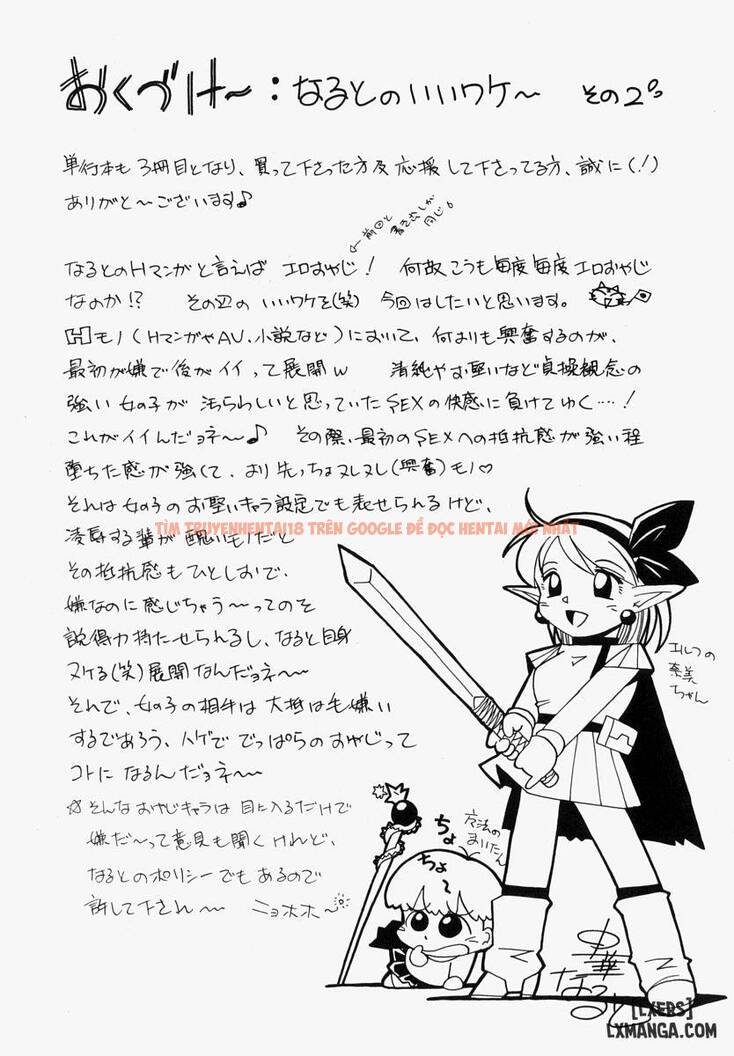 おくづけ〜：なるとのいいワケ〜 その2
単行本も3冊目となり、買って下さった方及応援して下さってる方、誠に(!)
ありがと〜ございます♪
←前回と書き出しが同じ
なるとのHマンガと言えば エロおやじ! 何故こうも毎度毎度エロおやじ
なのか!? その辺のいいワケを(笑) 今回はしたいと思います。
Hモノ(HマンガやAV、小説など)において、何よりも興奮するのが、
最初が嫌で後がイイって展開w 清純やお堅いなど貞操観念の
強い女の子が 汚らわしいと思っていたSEXの快感に負けてゆく…!
これがイイんだョネ〜♪ その際、最初のSEXへの抵抗感が強い程
堕ちた感が強くて、より先っちょヌレヌレ(興奮)モノ♡
それは女の子のお堅いキャラ設定でも表せられるけど、
TÌM TRUYENHENTAI18 TRÊN GOOGLE ĐỂ ĐỌC HENTAI MỚI NHẤT
凌辱する輩が醜いモノだと
その抵抗感もひとしおで、
嫌なのに感じちゃう〜ってのを
説得力持たせられるし、なると自身
ヌケる(笑)展開なんだョネ〜
それで、女の子の相手は大抵は毛嫌い
するであろう、ハゲででっぱらのおやじって
コトになるんだョネ〜
☆そんなおやじキャラは目に入るだけで
嫌だ〜って意見も聞くけれど、
なるとのポリシーでもあるので
許して下さん〜 ニョホホ〜
エルフの
奈美
ちゃん
魔法の
まいたん
ちょ
ちょ〜
[LXERS]
LXMANGA.COM